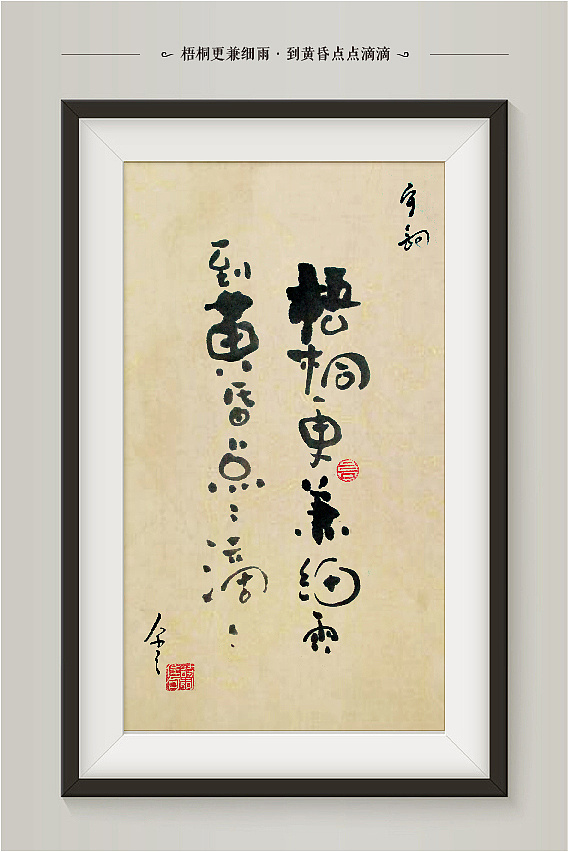 梧桐更兼细雨·到黄昏点点滴滴
梧桐更兼细雨
到黄昏点〻滴〻